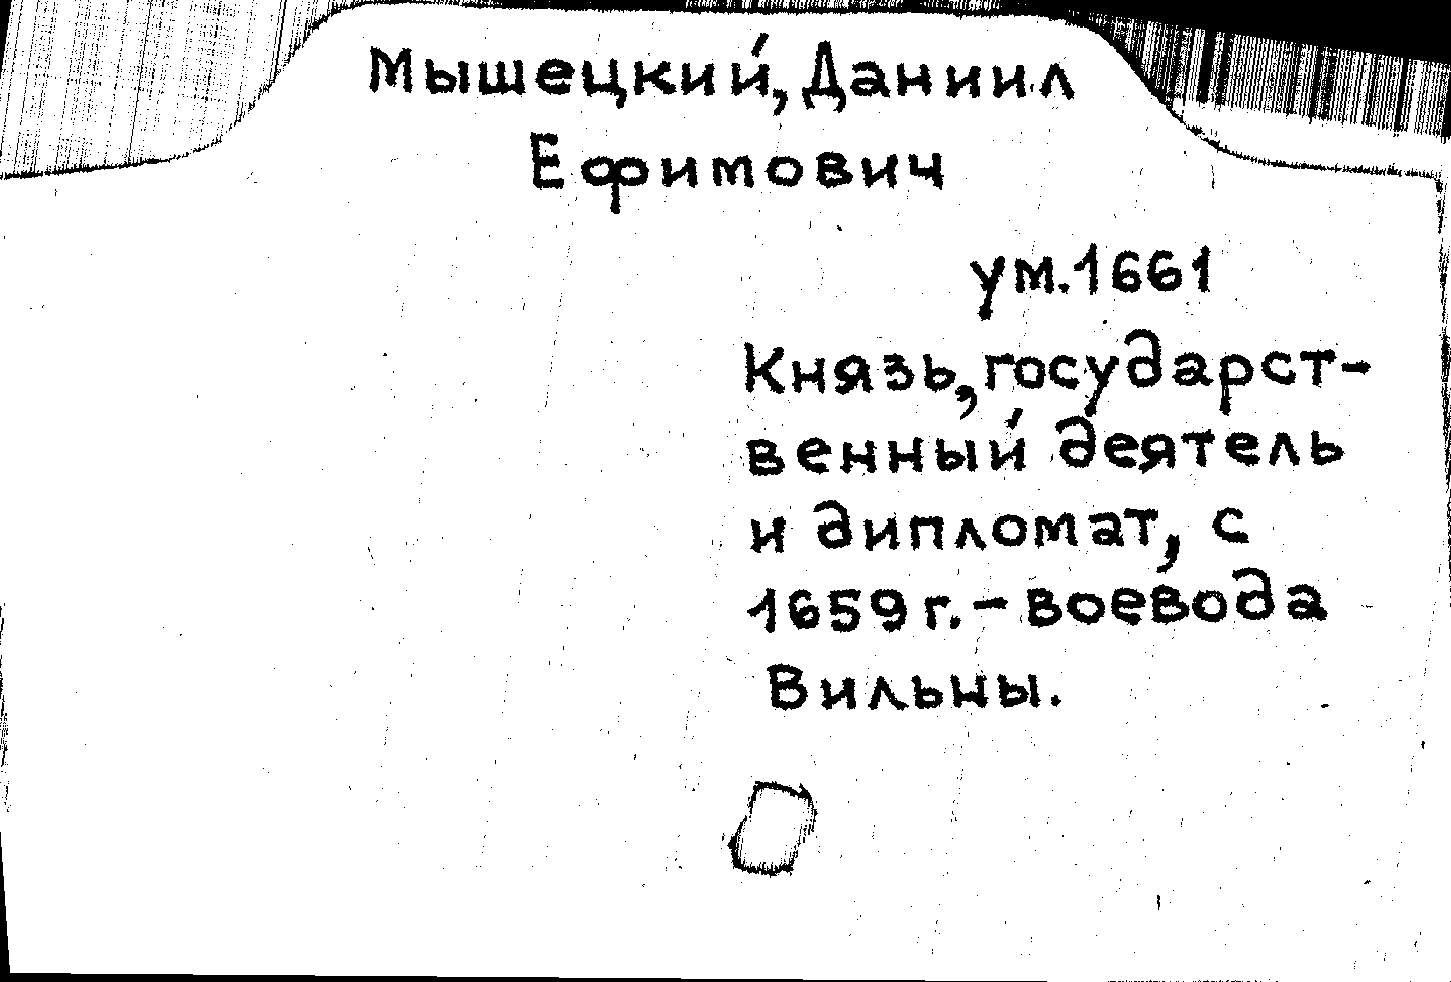 Мышецкий, Даниил
Ефимович
ум. 1661
Князь, государст-
венный деятель
и дипломат, с
1659 г. – воевода
Вильны.